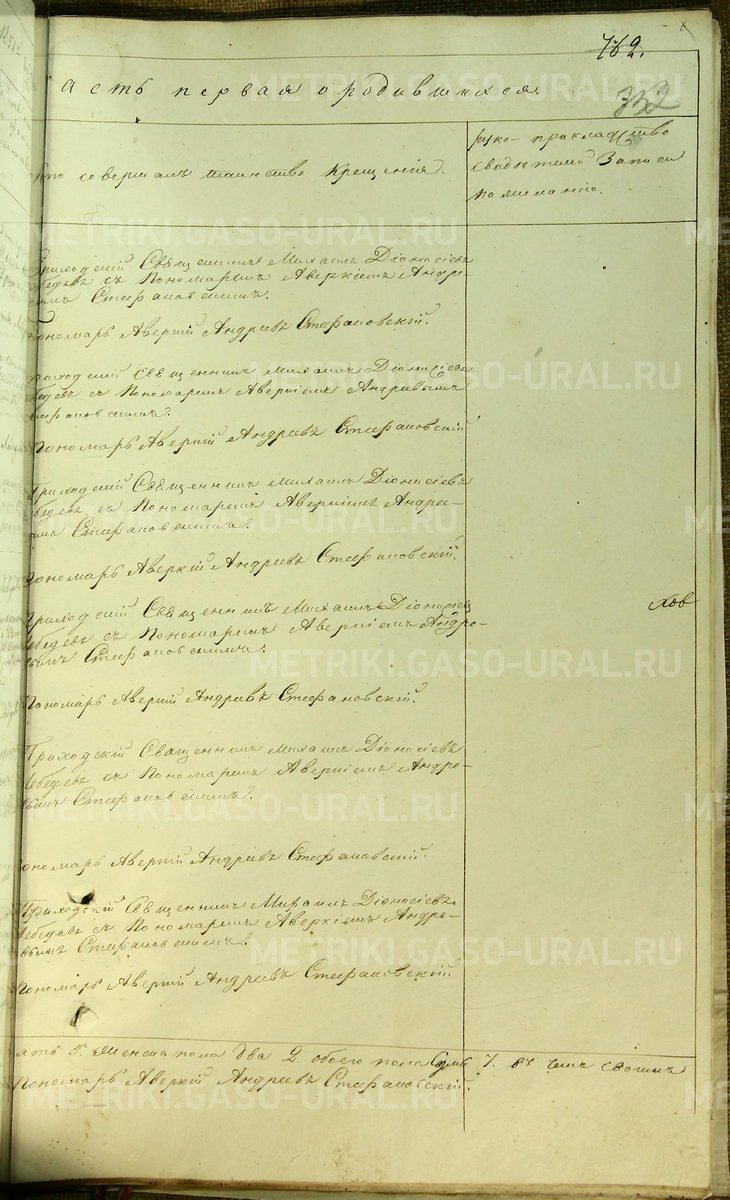 762.
752
асть первая о родившихся.
то совершалъ таинство крещенія.
руко-прикладство
свидѣтелей записи
по желанію.
Приходскій Священникъ Михаилъ Діонисіевъ
Лебедевъ съ Пономаремъ Аверкіемъ Андре-
мъ Стефановскимъ.
Пономарь Аверкій Андреевъ Стефановскій.
риходскій Священникъ Михаилъ Діонисіевъ
бедевъ съ Пономаремъ Аверкіемъ Андреевымъ
тефановскимъ.
Пономарь Аверкій Андреевъ Стефановскій
Приходскій Священникъ Михаилъ Діонисіевъ
бедевъ съ Пономаремъ Аверкіемъ Андре-
мъ Стефановскимъ.
Пономарь Аверкій Андреевъ Стефановскій.
Приходскій Священникъ Михаилъ Діонисіевъ
Лебедевъ съ Пономаремъ Аверкіемъ Андре-
вымъ Стефановскимъ.
Пономарь Аверкій Андреевъ Стефановскій.
Приходскій Священникъ Михаилъ Діонисіевъ
Лебедевъ съ Пономаремъ Аверкіемъ Андре-
вымъ Стефановскимъ.
Пономарь Аверкій Андреевъ Стефановскій.
Приходскій Священникъ Михаилъ Діонисіевъ
Лебедевъ съ Пономаремъ Аверкіемъ Андре-
вымъ Стефановскимъ.
Пономарь Аверкій Андреевъ Стефановскій.
ять 5. женска пола два 2. обоего пола семь 7. въ чемъ
Пономарь Аверкій Андреевъ Стефановскій.
METRIKI.GASO-URAL.RU